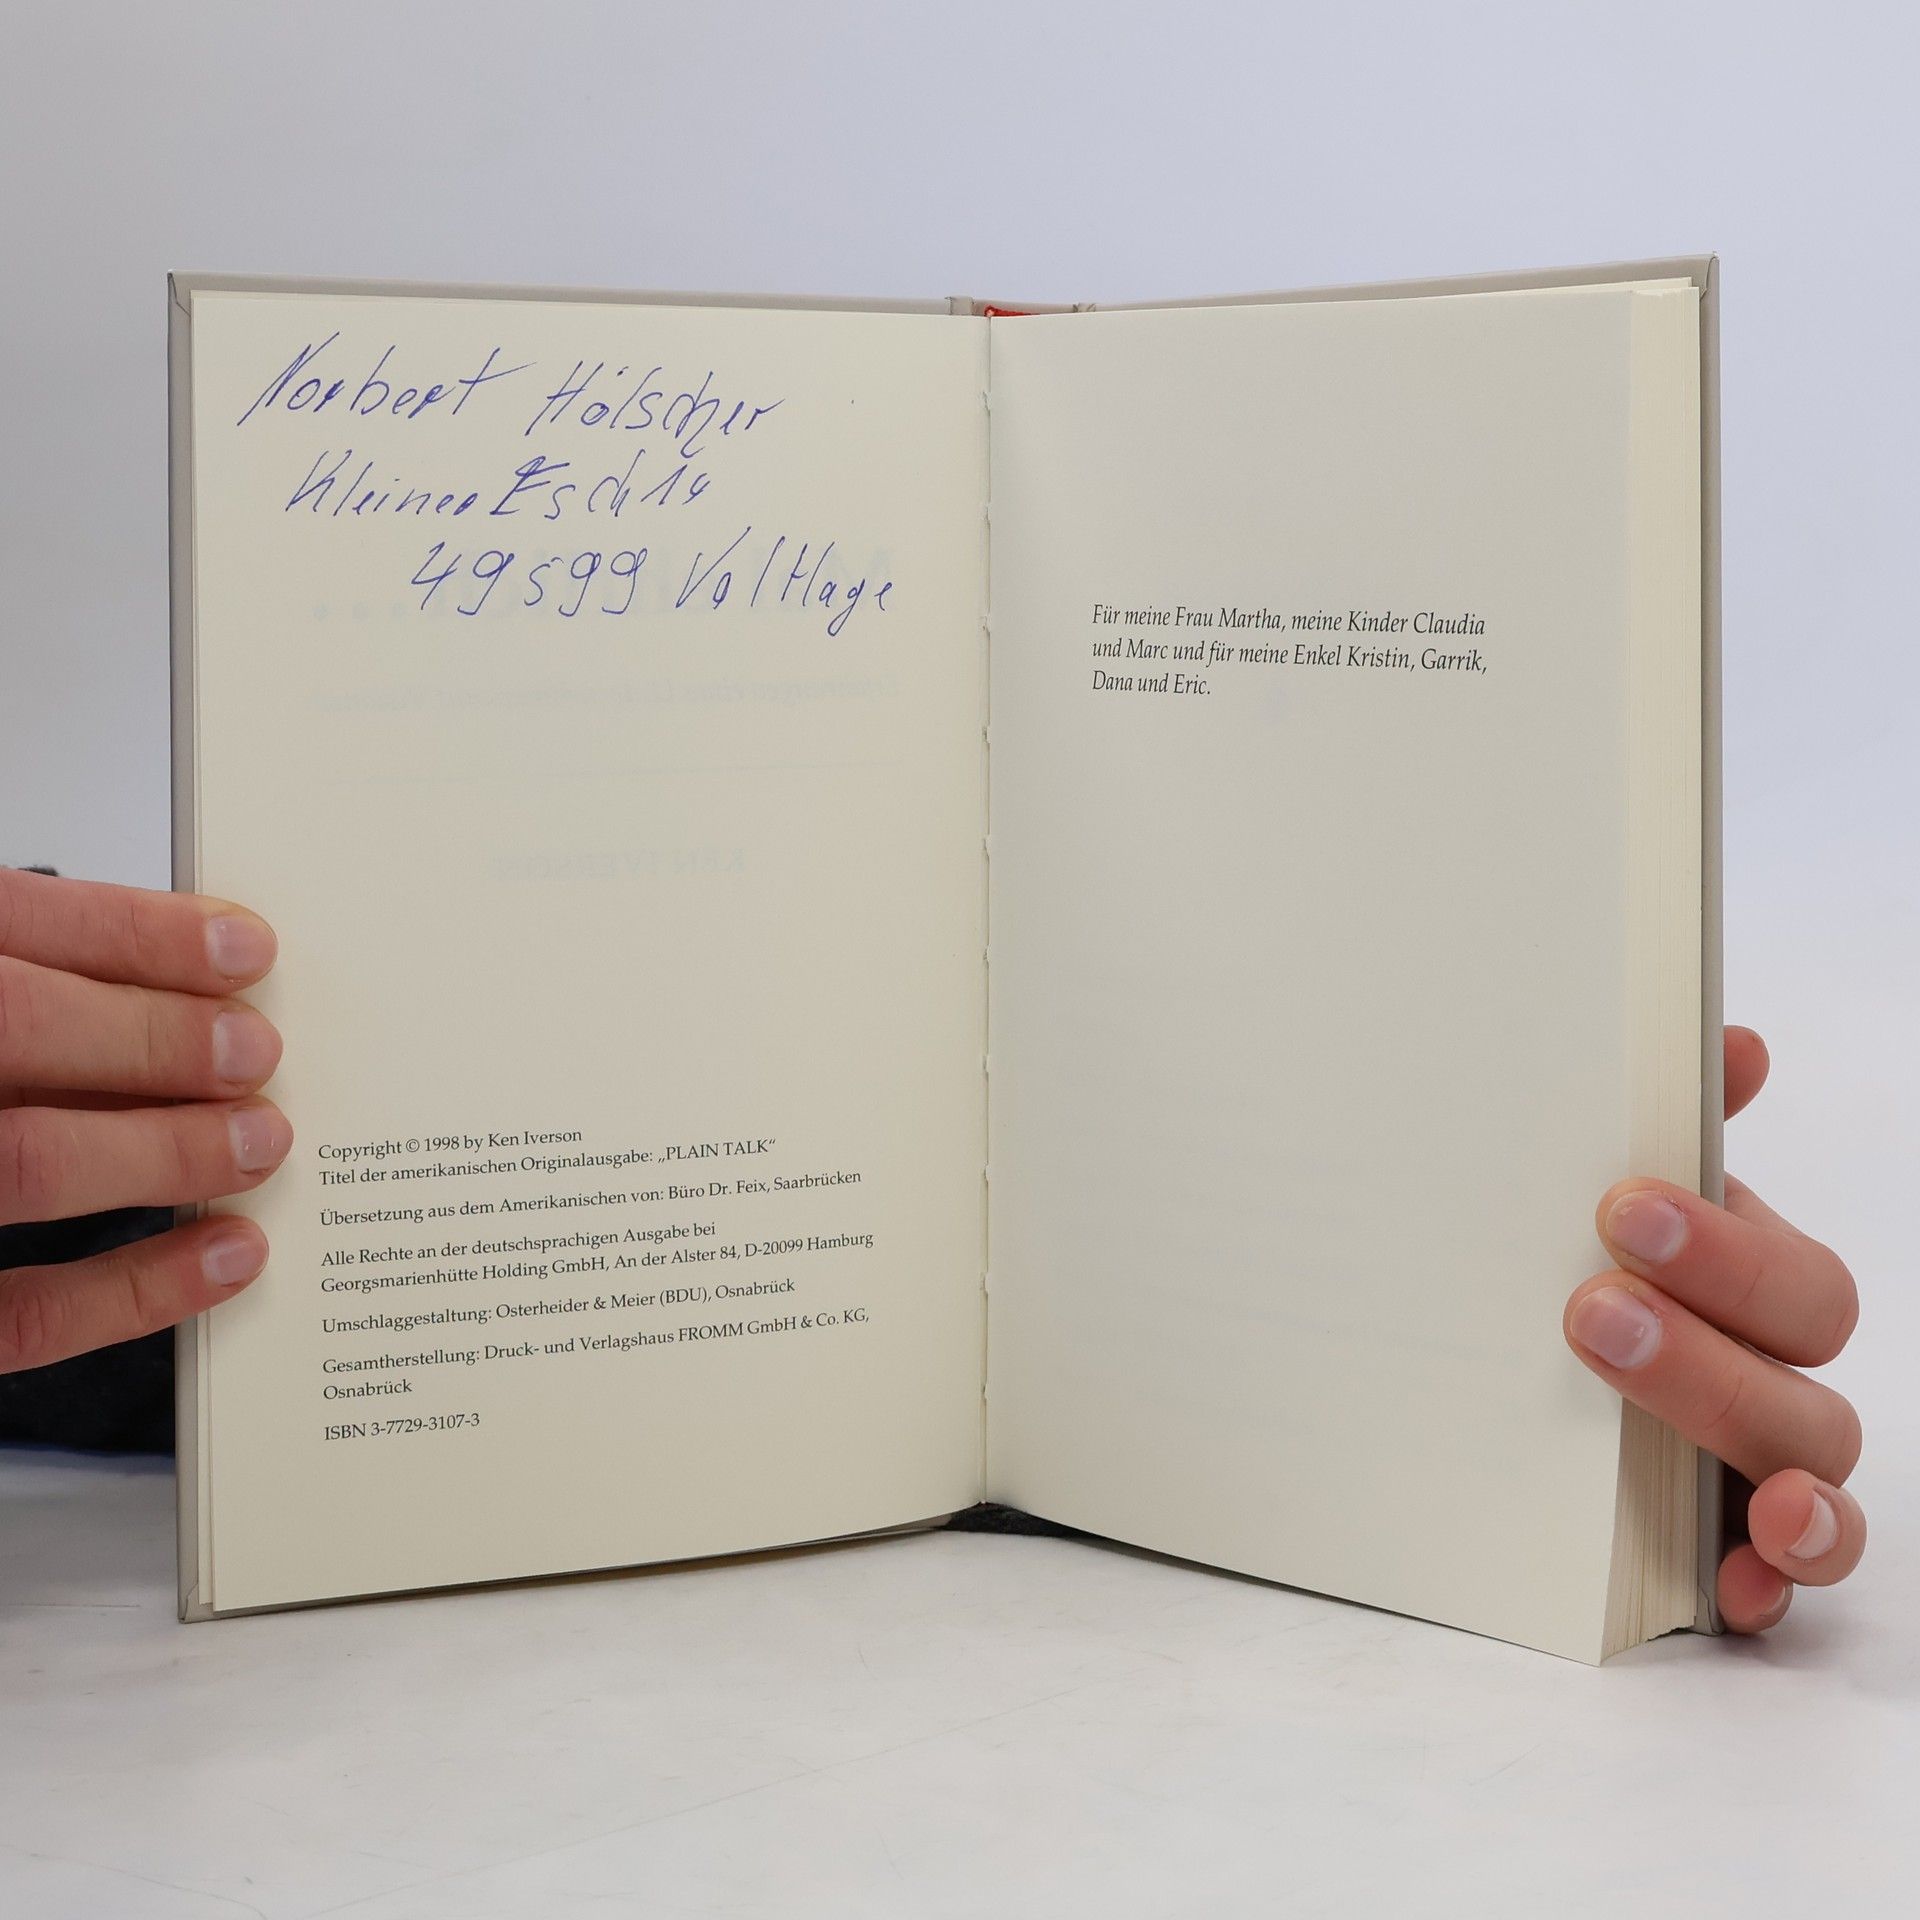 Norbert Hölscher
Kleiner Esch 14
49599 Voltlage
Copyright © 1998 by Ken Iverson
Titel der amerikanischen Originalausgabe: „PLAIN TALK“
Übersetzung aus dem Amerikanischen von: Büro Dr. Feix, Saarbrücken
Alle Rechte an der deutschsprachigen Ausgabe bei
Georgsmarienhütte Holding GmbH, An der Alster 84, D-20099 Hamburg
Umschlaggestaltung: Osterheider & Meier (BDU), Osnabrück
Gesamtherstellung: Druck- und Verlagshaus FROMM GmbH & Co. KG,
Osnabrück
ISBN 3-7729-3107-3
Für meine Frau Martha, meine Kinder Claudia
und Marc und für meine Enkel Kristin, Garrik,
Dana und Eric.